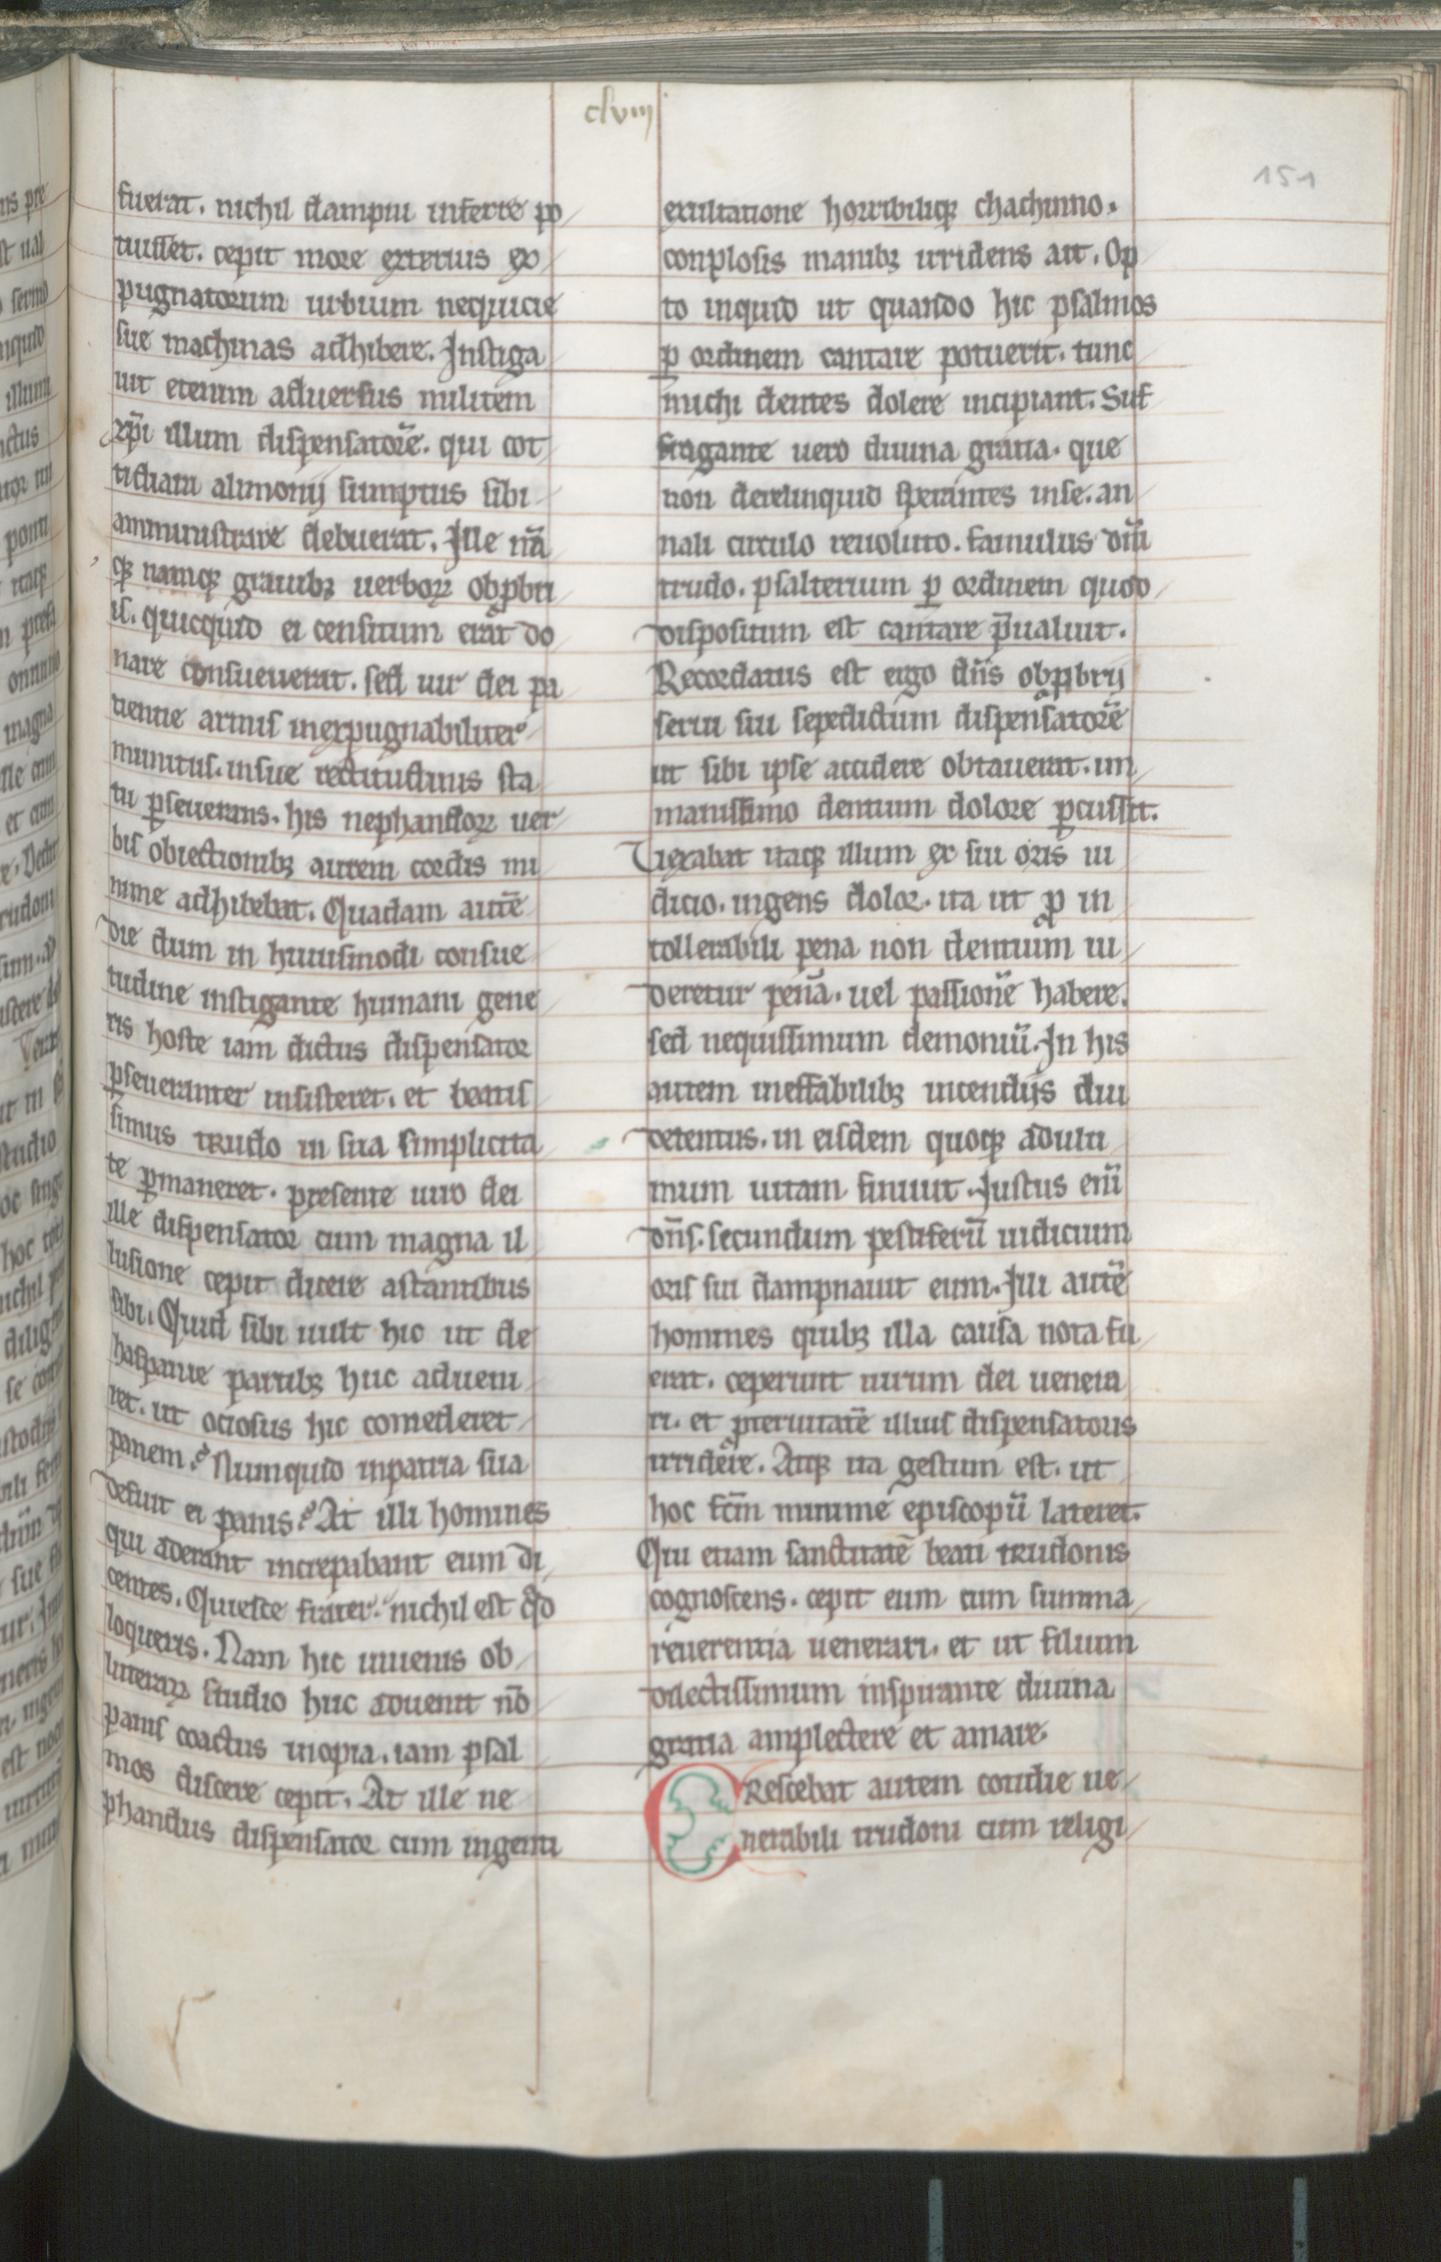 clviii
151
fuerat. nichil dampni inferre po
tuisset. cepit more exterius ex
pugnatorum urbium nequicie
sue machinas adhibere. Instiga
uit etenim aduersus militem
xp̄i illum dispensatorē. qui cot
tidiani alimonij sumptus sibi
amministrare debuerat. Ille nā
qꝫ namqꝫ grauibꝫ uerboꝝ obꝓbri
is. quicquid ei censitum erat do
nare consueuerat. sed uir dei pa
tientie armis inexpugnabiliter
munitus. in sue rectitudinis sta
tu ꝑseuerans. his nephandoꝝ uer
bis obiectionibꝫ aurem cordis mi
nime adhibebat. Quadam autē
die dum in huiusmodi consue
tudine instigante humani gene
ris hoste iam dictus dispensator
ꝑseueranter insisteret. et beatis
simus trudo in sua simplicita
te ꝑmaneret. presente uiro dei
ille dispensator cum magna il
lusione cepit dicere astantibus
sibi. Quid sibi uult hic ut de
haspanie partibꝫ huc adueni
ret. ut ociosus hic comederet
panem? Numquid in patria sua
defuit ei panis? At illi homines
qui aderant increpabant eum di
centes. Quiesce frater. nichil est qd
loqueris. Nam hic iuuenis ob
litteraꝝ studio huc aduenit nō
panis coactus inopia. iam psal
mos discere cepit. At ille ne
phandus dispensator cum ingenti
exultatione horribiliqꝫ chachinno.
conplosis manibꝫ irridens ait. Op
to inquid ut quando hic psalmos
ꝑ ordinem cantare potuerit. tunc
michi dentes dolere incipiant. Suf
fragante uero diuina gratia. que
non derelinquid sperantes in se. an
nali circulo reuoluto. famulus dn̄i
trudo. psalterium ꝑ ordinem quod
dispositum est cantare p̄ualuit.
Recordatus est ergo dn̄s obꝓbrij
serui sui sepedictum dispensatorē
ut sibi ipse accidere obtauerat. im
manissimo dentium dolore ꝑcussit.
Uexabat itaqꝫ illum ex sui oris iu
dicio. ingens dolor. ita ut ꝓ in
tollerabili pena non dentium ui
deretur penā. uel passionē habere.
sed nequissimum demoniū. In his
autem ineffabilibꝫ incendijs diu
detentus. in eisdem quoqꝫ ad ulti
mum uitam finiuit. Justus enī
dn̄s. secundum pestiferū iudicium
oris sui dampnauit eum. Illi autē
homines quibꝫ illa causa nota fu
erat. ceperunt uirum dei uenera
ri. et ꝓteruitatē illius dispensatoris
irridere. Atqꝫ ita gestum est. ut
hoc fcm̄ minime episcopū lateret.
Qui etiam sanctitatē beati trudonis
cognoscens. cepit eum cum summa
reuerentia uenerari. et ut filium
dilectissimum inspirante diuina
gratia amplectere et amare.
Crescebat autem cotidie ue
nerabili trudoni cum religi